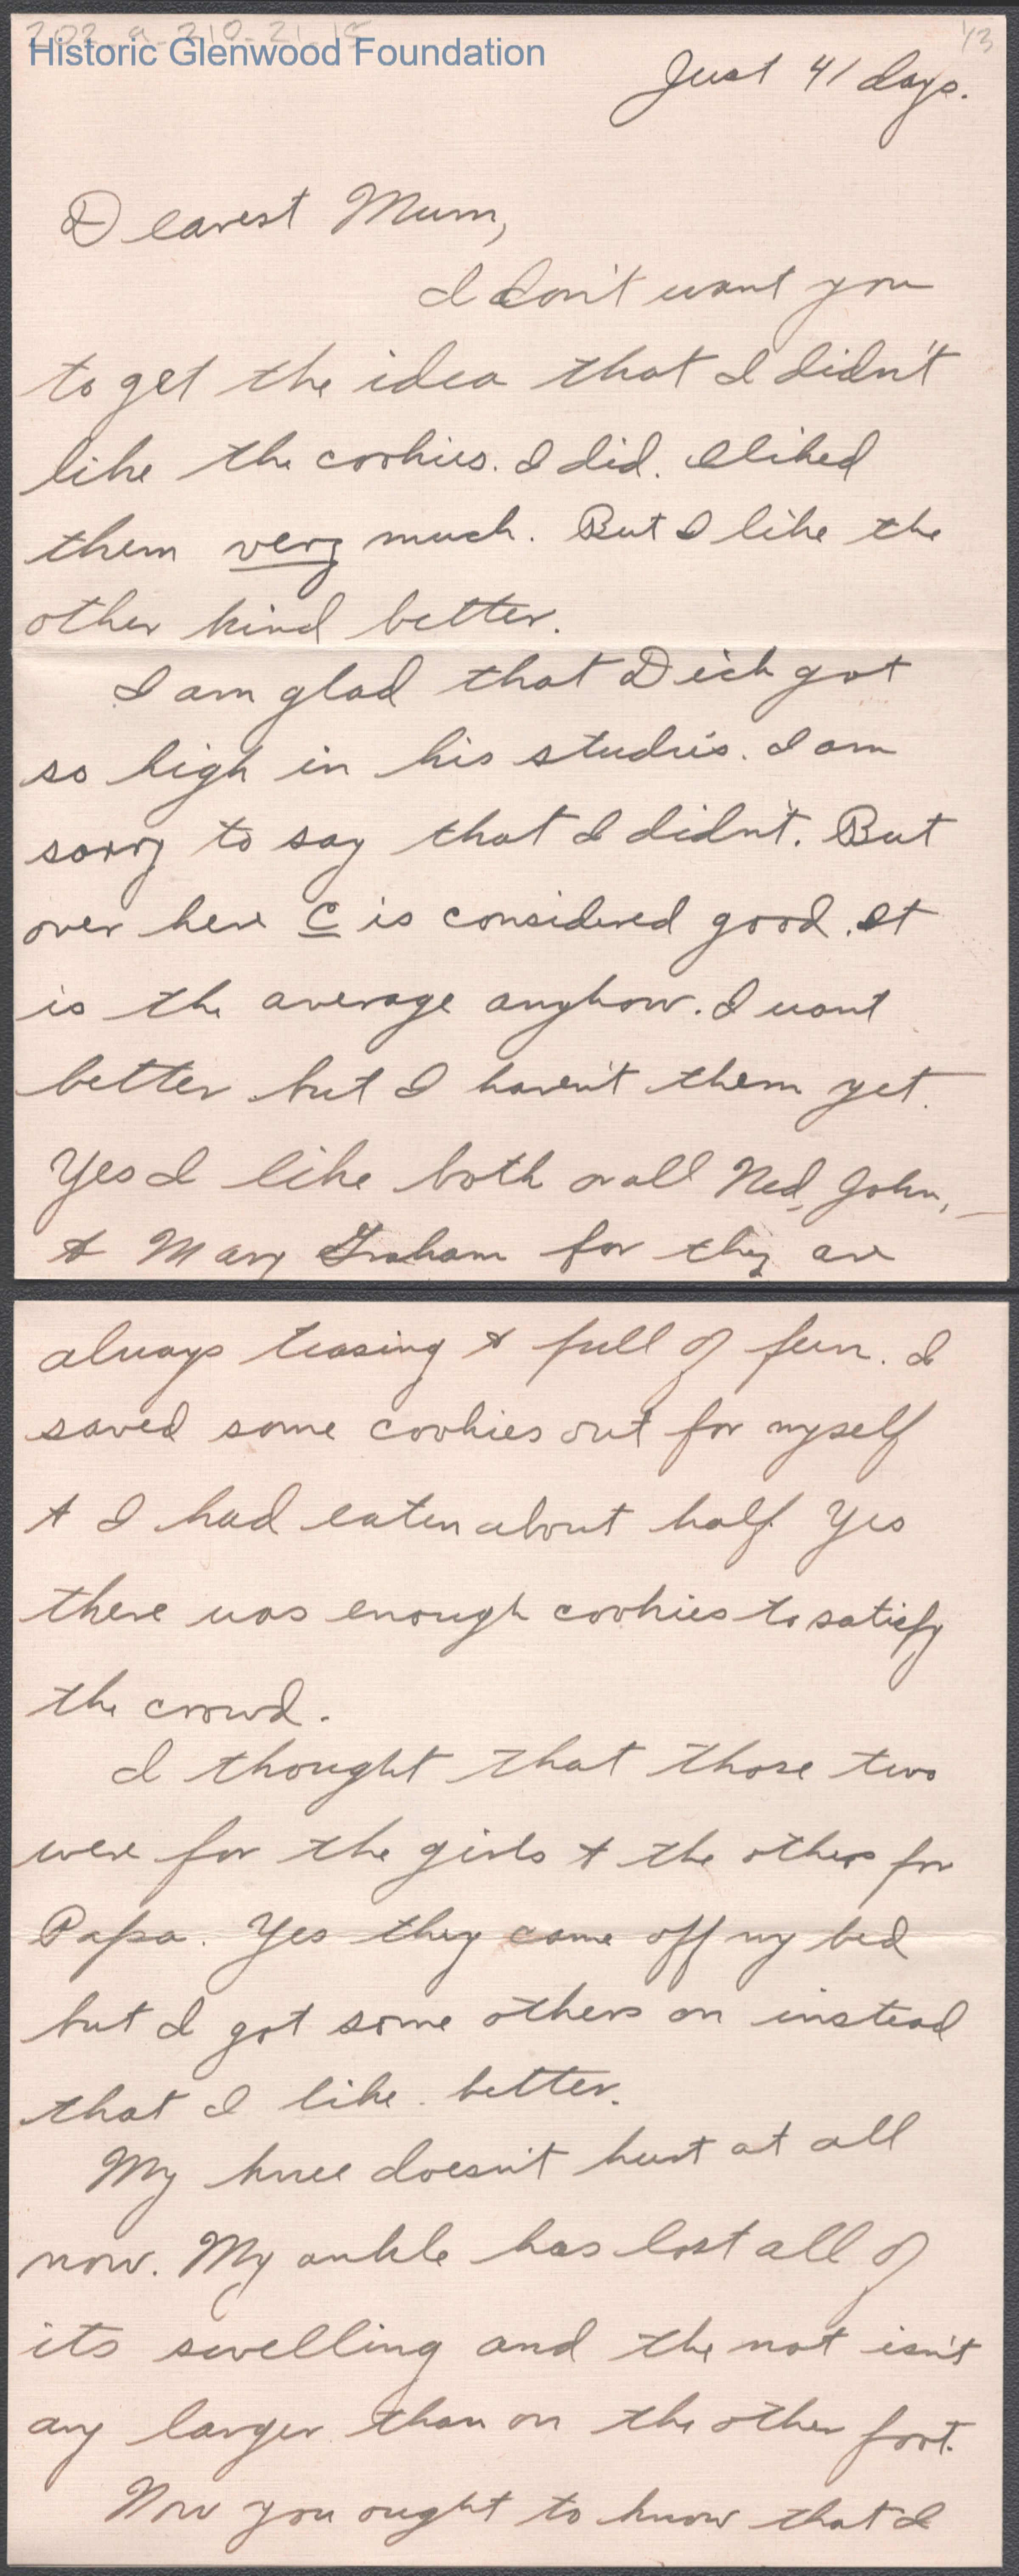 202-a-210-21-15
1/3
Historic Glenwood Foundation
Just 41 days.
Dearest Mum,
I don't want you
to get the idea that I didn't
like the cookies. I did. I liked
them very much. But I like the
other kind better.
I am glad that Dick got
so high in his studies. I am
sorry to say that I didn't. But
over here C is considered good. It
is the average anyhow. I want
better but I haven't them yet.
Yes I like both or all Ned, John,
& Mary Graham for they are
always teasing & full of fun. I
saved some cookies out for myself
& I had eaten about half. Yes
there was enough cookies to satisfy
the crowd.
I thought that those two
were for the girls & the others for
Papa. Yes they came off my bed
but I got some others on instead
that I like better.
My knee doesn't hurt at all
now. My ankle has lost all of
its swelling and the not isn't
any larger than on the other foot.
Now you ought to know that I